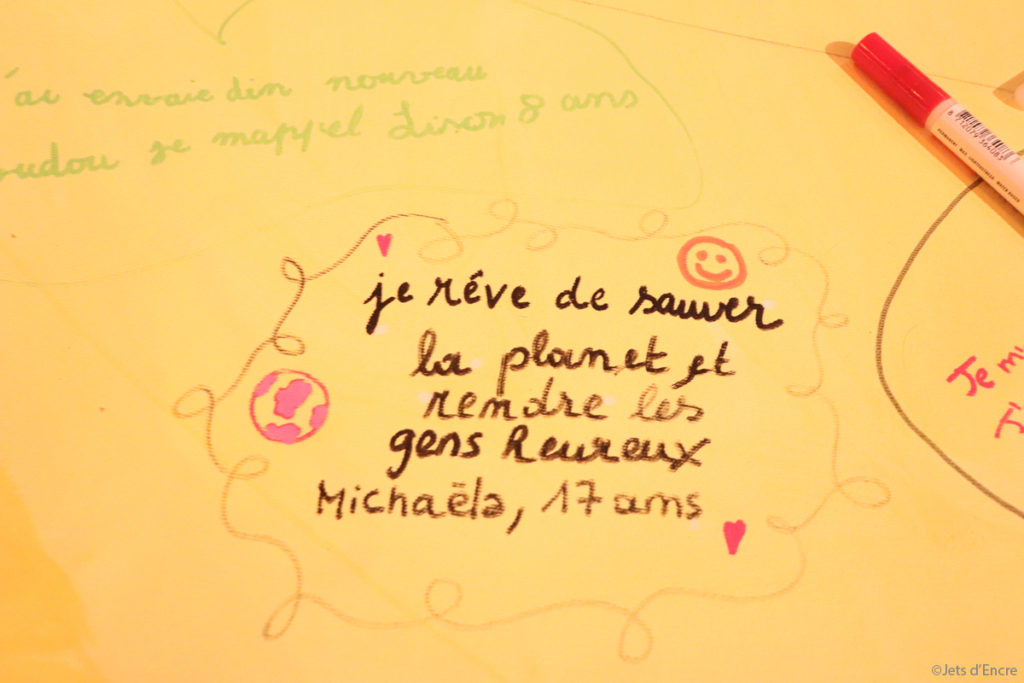 'ai envaie din nouveau
oudou je mappel Lison 8 ans
je réve de sauver
la planet et
rendre les
gens heureux
Michaëla, 17 ans
Je mu
J'
8 712079 364083
©Jets d'Encre